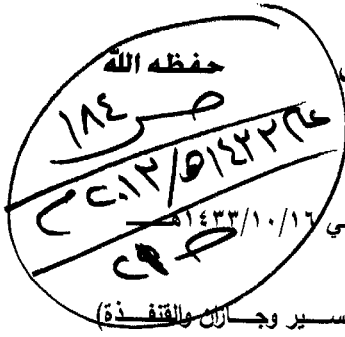 حفظه الله
ص ١٨٤
عام ١٤٣٣هـ/٢٠١٢م
ص ٢٩
ي ١٤٣٣/١٠/١٦هـ
سير وجازان والقنفذة)